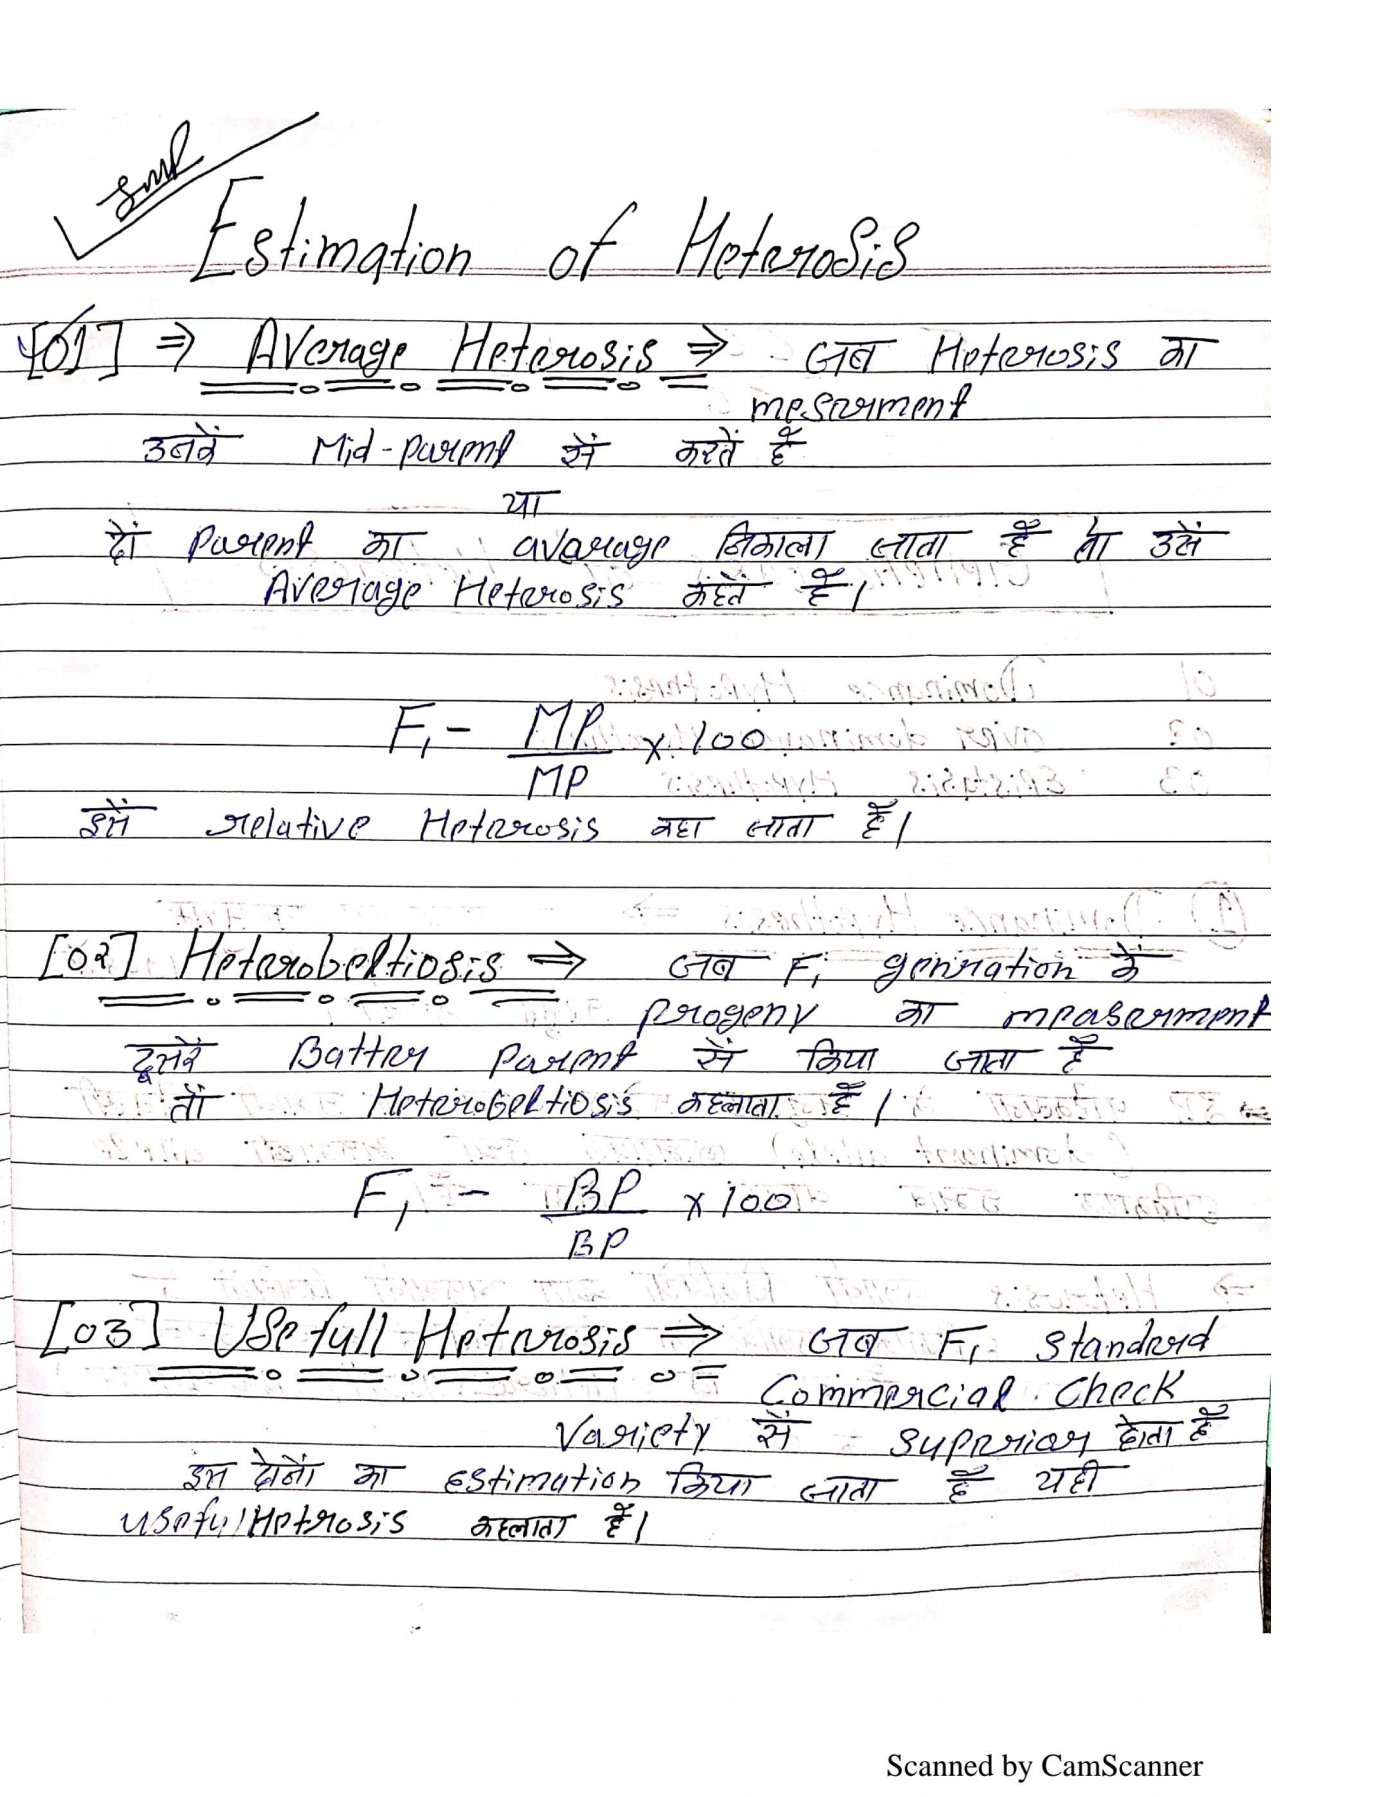 Imp
Estimation of Heterosis
[01] ⇒ Average Heterosis ⇒ जब Heterosis का
mesarment
उनके Mid-parent सें करतें हैं
या
दो parent का avarage निकाला जाता हैं तो उसें
Average Heterosis कहतें हैं।
F₁ - MP/MP × 100
इसें relative Heterosis कहा जाता हैं।
[02] Heterobeltiosis ⇒ जब F₁ genration कें
progeny का measerment
दूसरें Batter parent सें किया जाता हैं
तों Heterobeltiosis कहलाता हैं।
F₁ - BP/BP × 100
[03] Usefull Heterosis ⇒ जब F₁ standerd
Commercial Check
Variety सें superior होता हैं
इस दोनों का estimation किया जाता हैं यही
useful Hetrosis कहलाता हैं।
Scanned by CamScanner